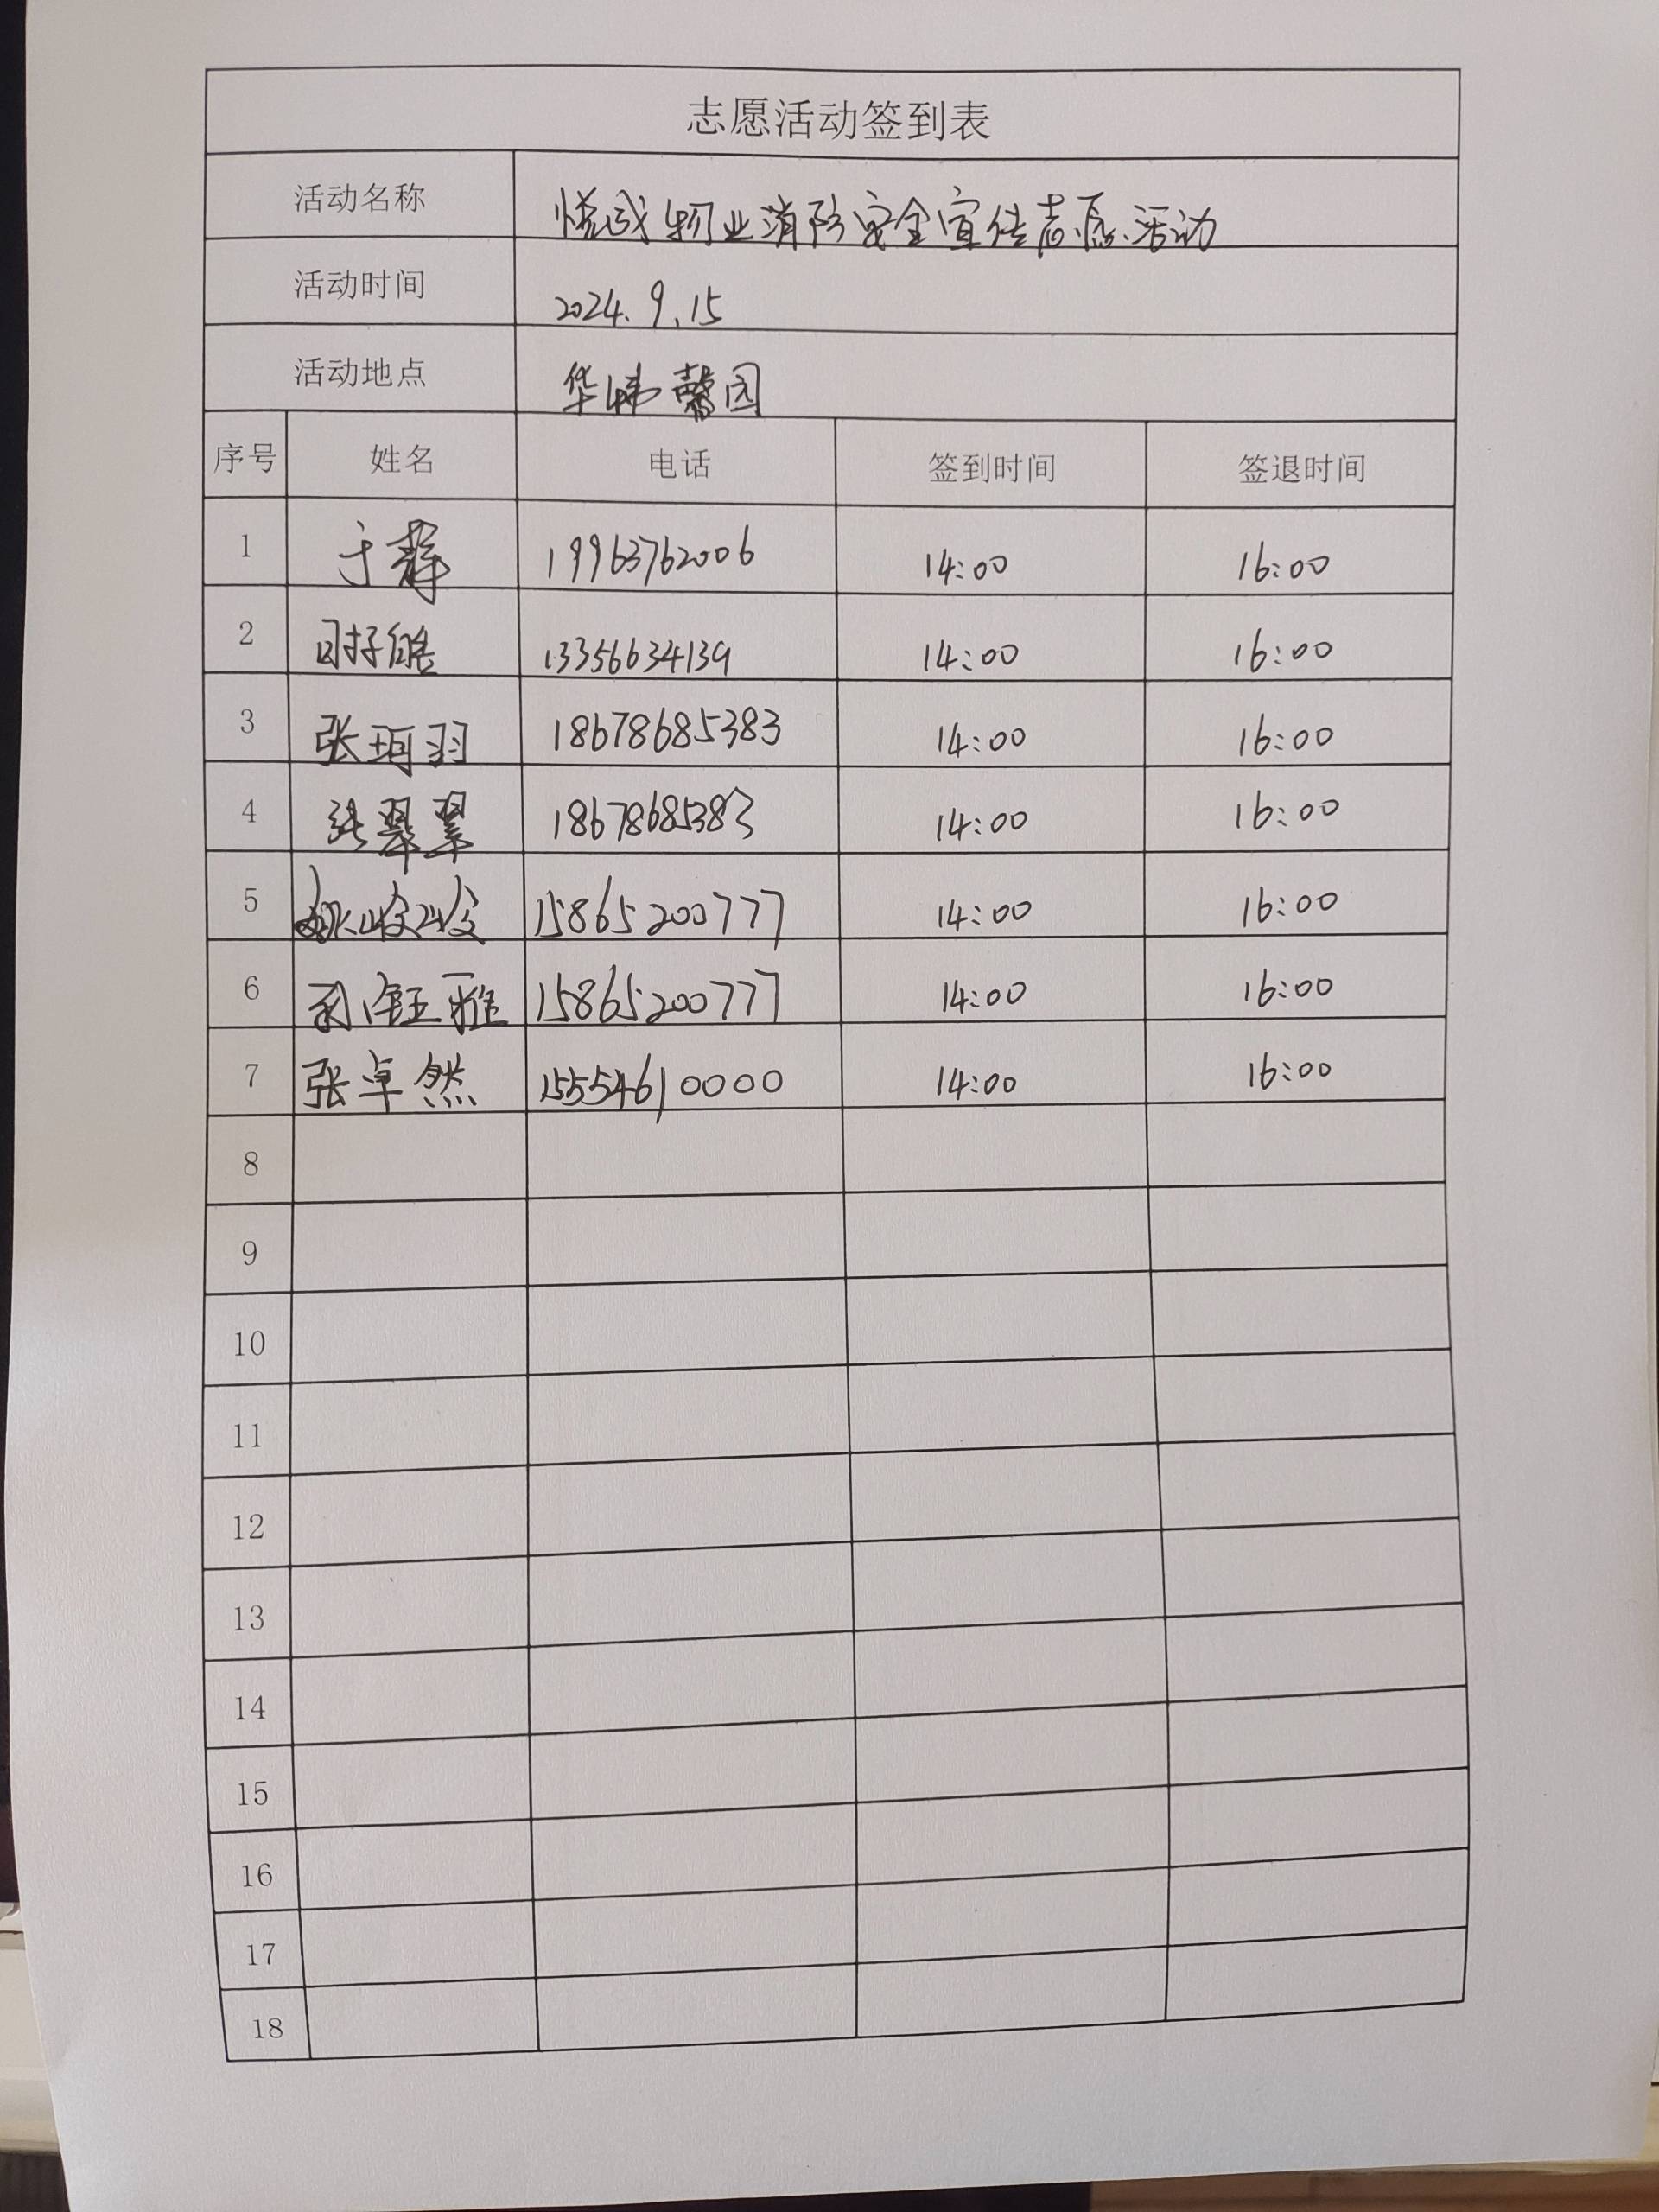 志愿活动签到表
活动名称 悦诚物业消防安全宣传志愿活动
活动时间 2024.9.15
活动地点 华炜馨园
序号 姓名 电话 签到时间 签退时间
1 于 19963762006 14:00 16:00
2 13356634139 14:00 16:00
3 张珂羽 18678685383 14:00 16:00
4 张翠翠 18678685383 14:00 16:00
5 姚姣姣 15865200777 14:00 16:00
6 钰雅 15865200777 14:00 16:00
7 张卓然 15554610000 14:00 16:00
8
9
10
11
12
13
14
15
16
17
18